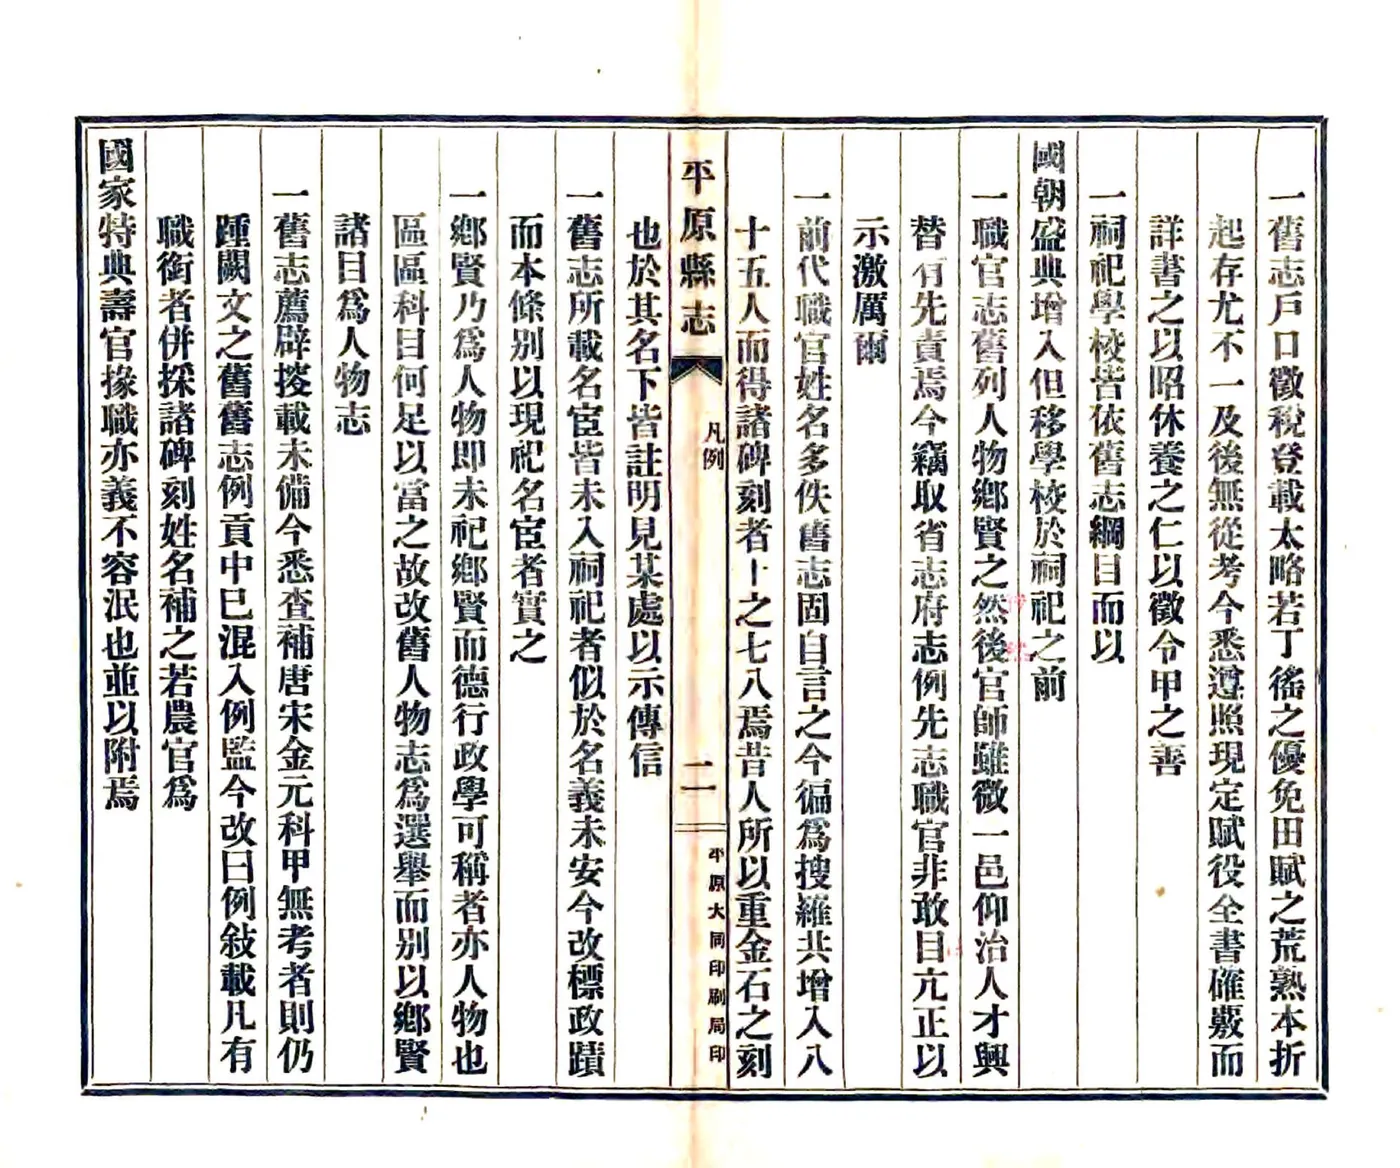 一舊志戶口徵稅登載太略若丁徭之優免田賦之荒熟本折
起存尤不一及後無從考今悉遵照現定賦役全書確覈而
詳書之以昭休養之仁以徵令甲之善
一祠祀學校皆依舊志綱目而以
國朝盛典增入但移學校於祠祀之前
一職官志舊列人物鄉賢之然後官師雖微一邑仰治人才興
替有先責焉今竊取省志府志例先志職官非敢目亢正以
示激厲爾
一前代職官姓名多佚舊志固自言之今徧爲搜羅共增入八
十五人而得諸碑刻者十之七八焉昔人所以重金石之刻
也於其名下皆註明見某處以示傳信
平原縣志
凡例
二
平原大同印刷局印
一舊志所載名宦皆未入祠祀者似於名義未安今改標政蹟
而本條別以現祀名宦者實之
一鄉賢乃爲人物即未祀鄉賢而德行政學可稱者亦人物也
區區科目何足以當之故改舊人物志爲選舉而別以鄉賢
諸目爲人物志
一舊志薦辟掞載未備今悉查補唐宋金元科甲無考者則仍
踵闕文之舊舊志例貢中已混入例監今改曰例敍載凡有
職銜者併採諸碑刻姓名補之若農官爲
國家特典壽官掾職亦義不容泯也並以附焉